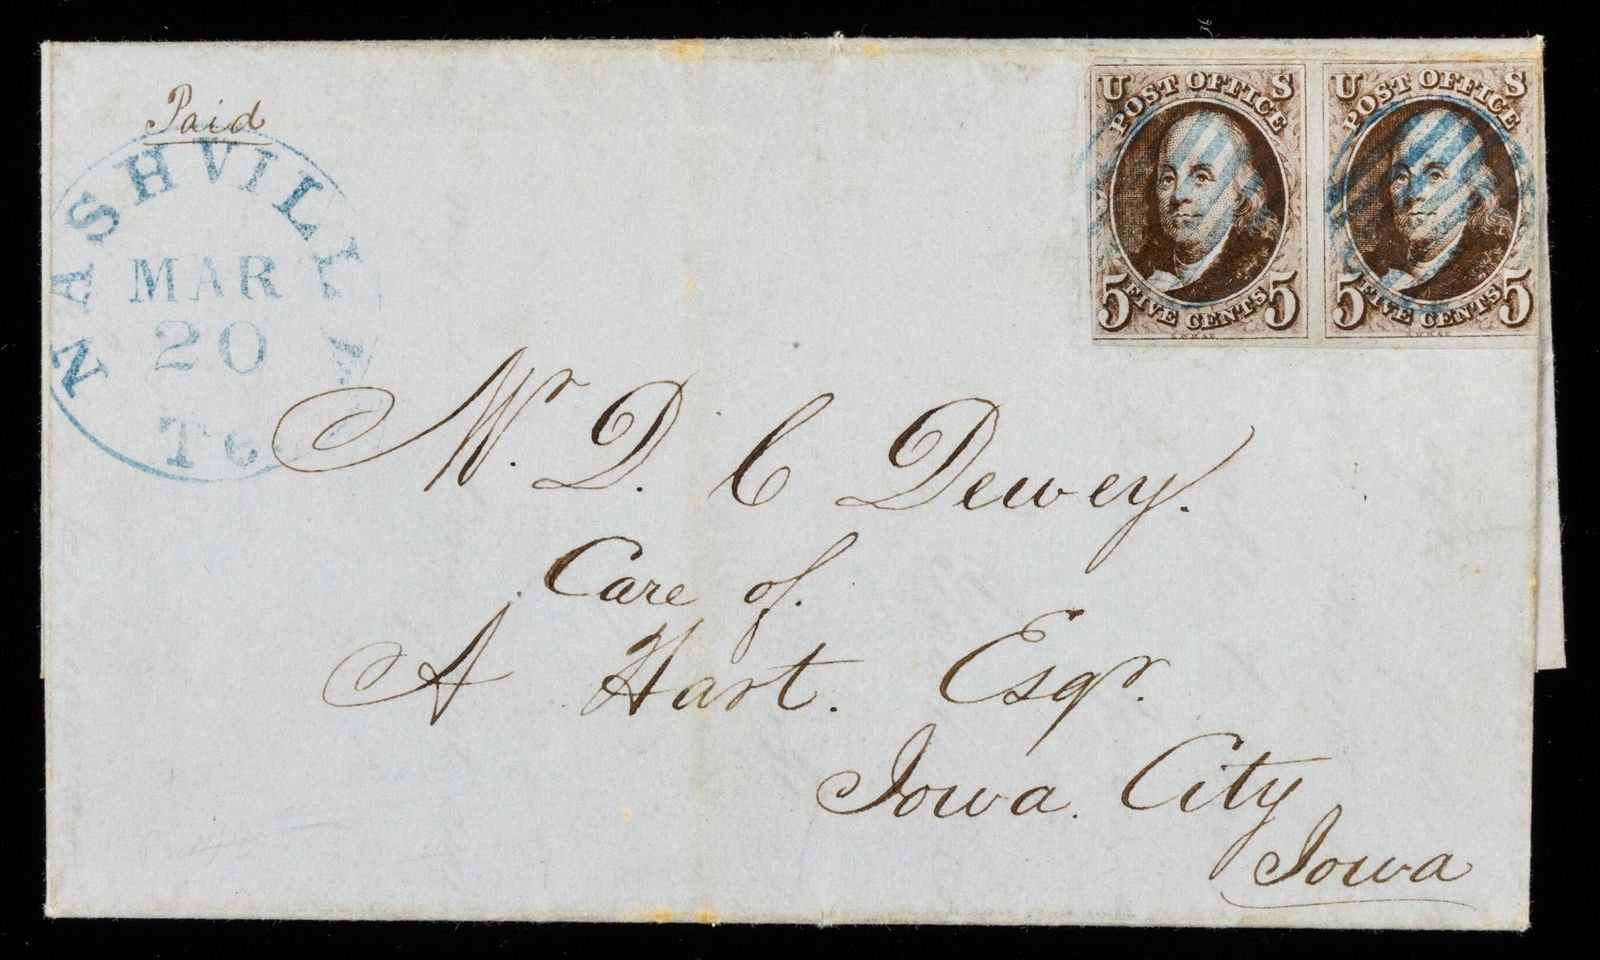 Paid
NASHVILLE
MAR
20
U S
POST OFFICE
5 FIVE CENTS 5
U S
POST OFFICE
5 FIVE CENTS 5
Mr. D. C Dewey.
Care of.
A Hart. Esqr.
Iowa. City
Iowa